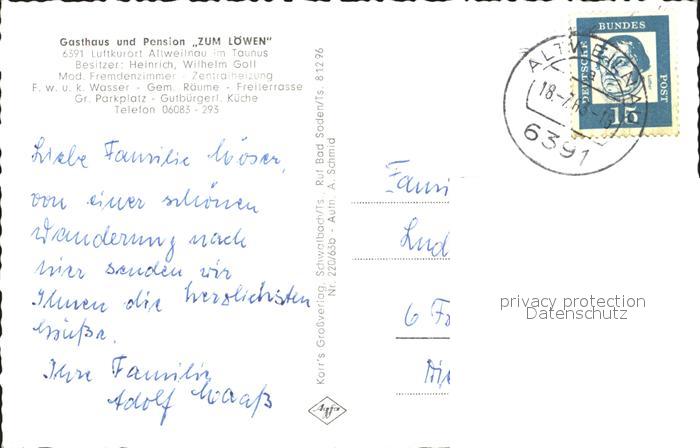 Gasthaus und Pension „ZUM LÖWEN"
6391 Luftkurort Altweilnau im Taunus
Besitzer: Heinrich, Wilhelm Goll
Mod. Fremdenzimmer - Zentralheizung
F. w. u. k. Wasser - Gem. Räume - Freiterrasse
Gr. Parkplatz - Gutbürgerl. Küche
Telefon 06083 - 293
Liebe Familie Möser,
von einer schönen
Wanderung nach
hier senden wir
Ihnen die herzlichsten
Grüße.
Ihre Familie
Adolf Maaß
Karr's Großverlag, Schwalbach/Ts., Ruf Bad Soden/Ts. 81296
Nr. 220/63b - Aufn. A. Schmid
Agfa
Fami
Lud
6 Fr
DEUTSCHE BUNDES POST
15
6391
privacy protection
Datenschutz